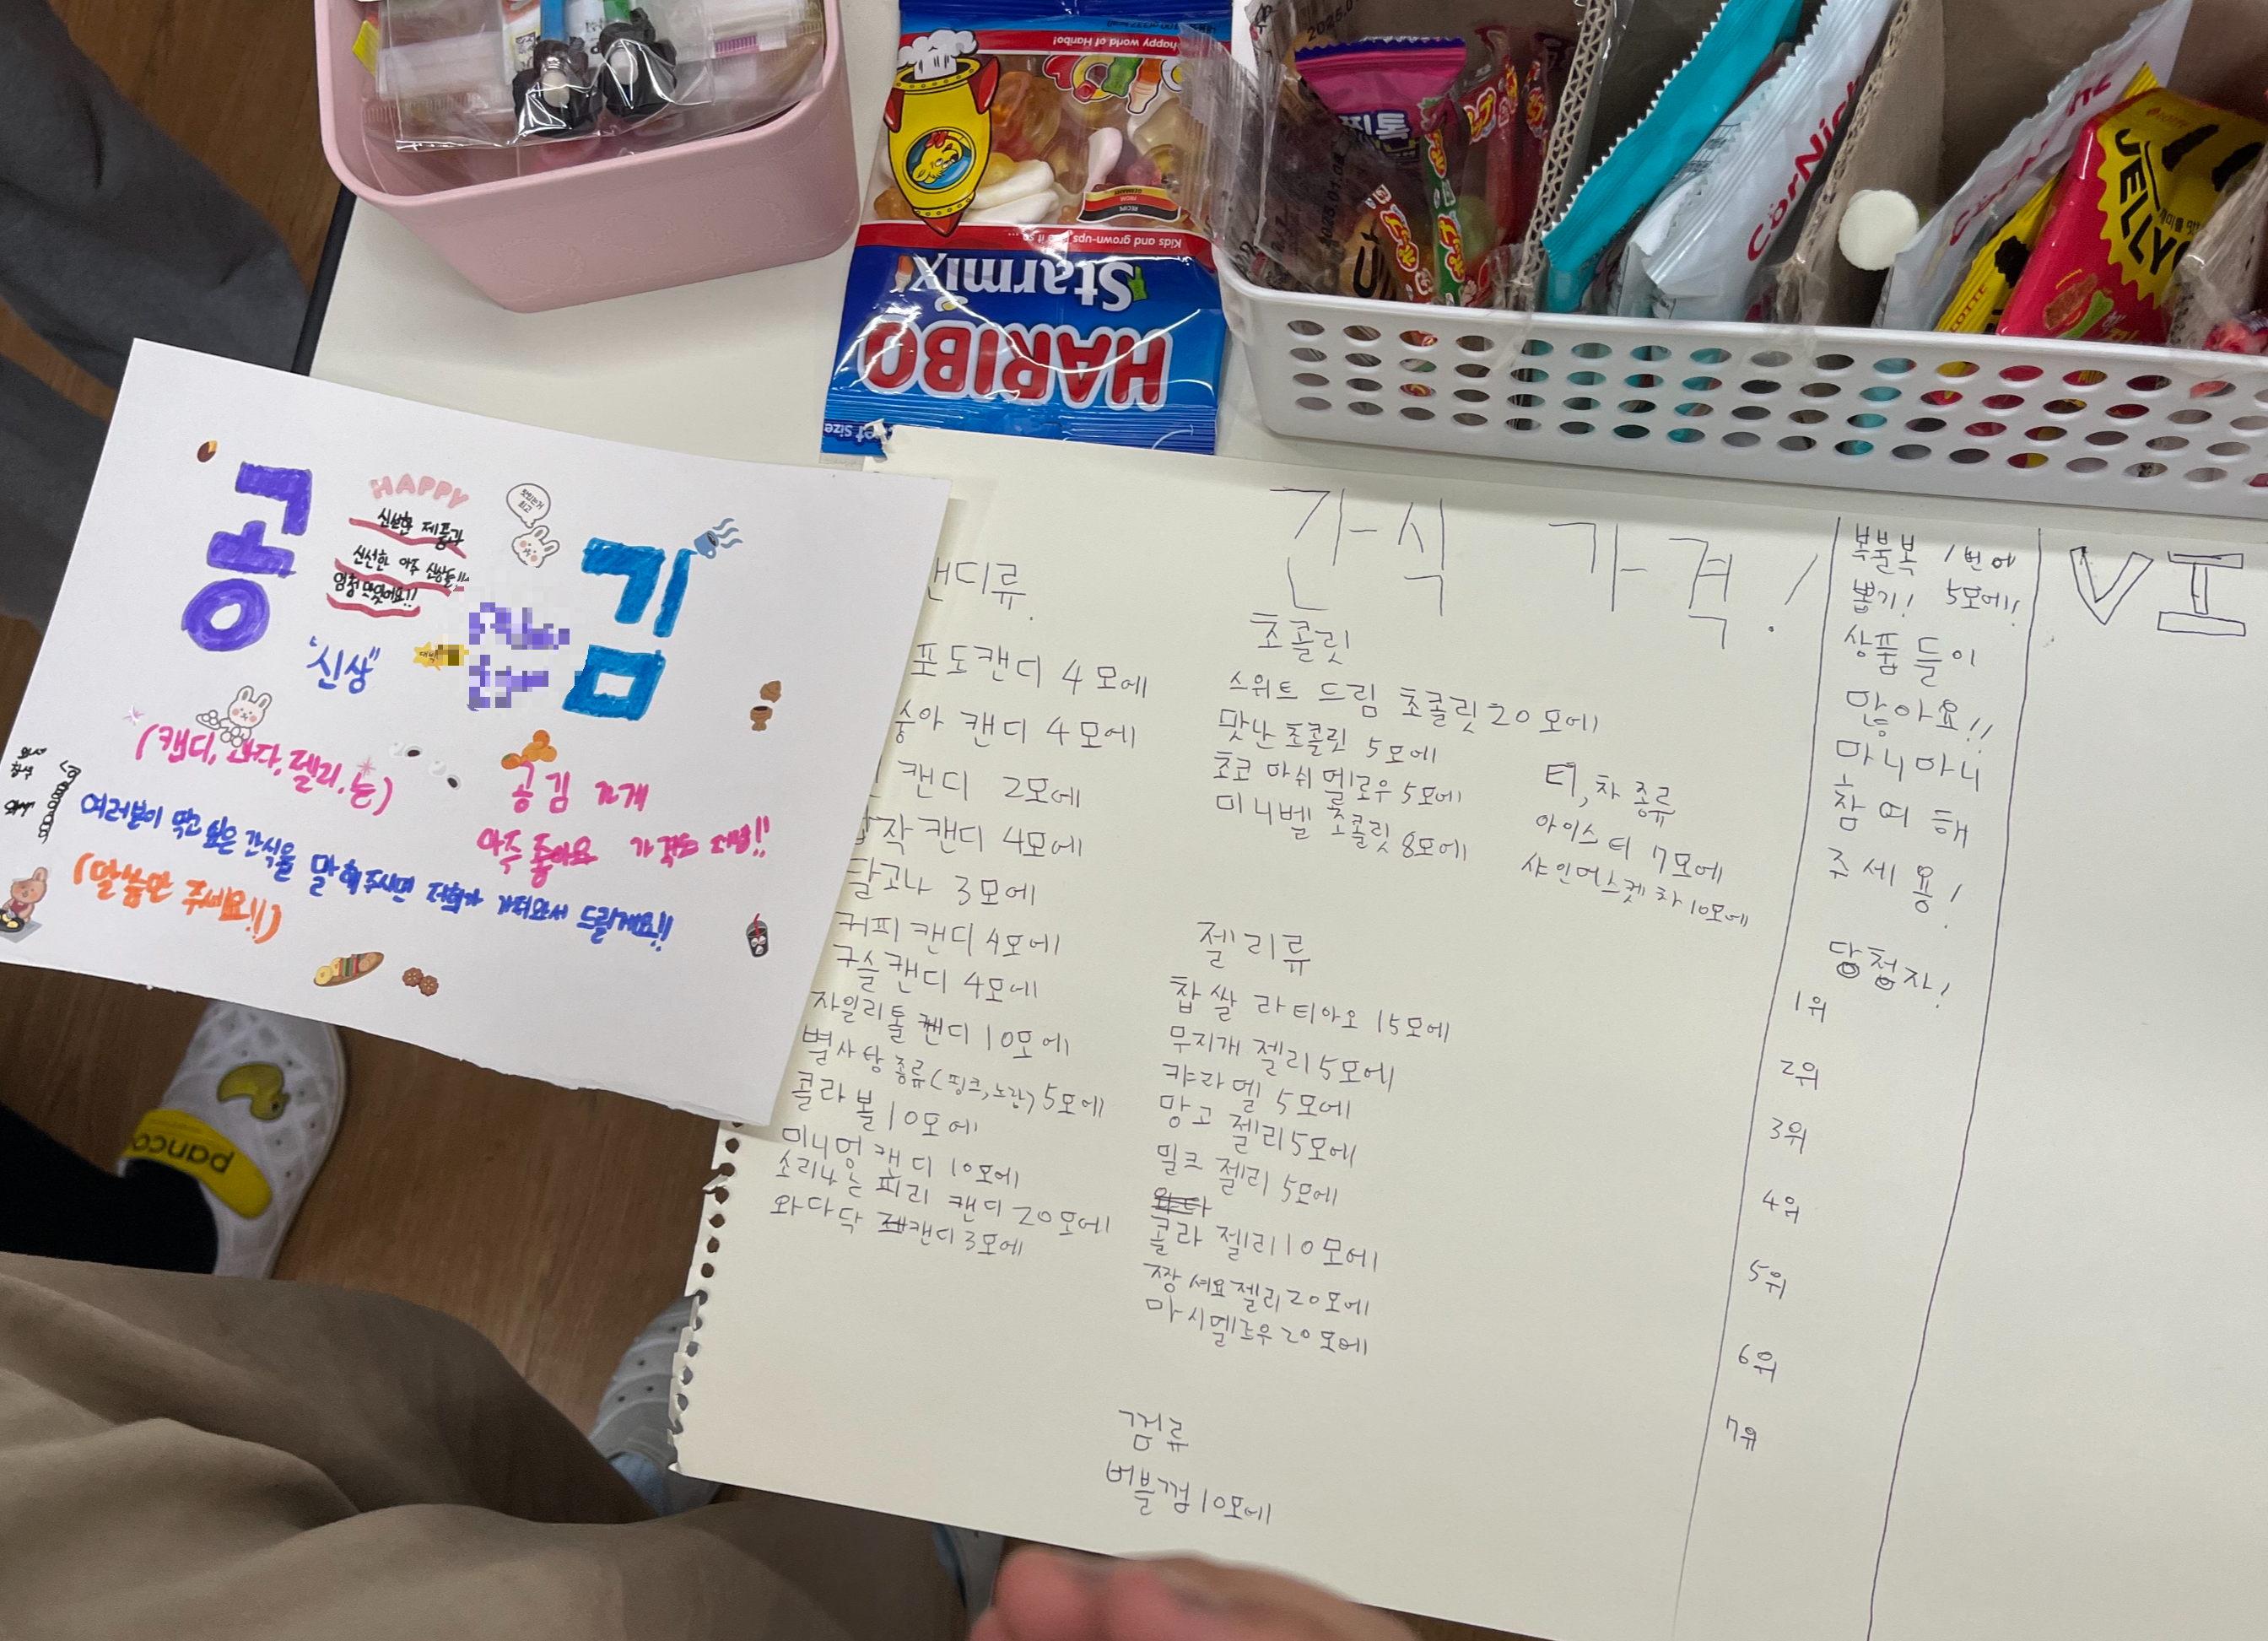 HAPPY
신선한 제품과
신선한 아주 신상들!!
엄청 맛있어요!!
맛있는거
최고
공 김
"신상"
(캔디, 과자, 젤리, 등)
공김 가게
아주 좋아요 가격도 저렴!!
여러분이 먹고 싶은 간식을 말해주시면 저희가 가져와서 드릴게요!!
(말씀만 주세요!!)
HARIBO
Starmix
Kids and grown-ups
happy world of Haribo!
RECIPE
FROM
GERMANY
톡
CorNick
LOTTE
JELLY
간식 가격!
캔디류.
포도캔디 4모에
숭아 캔디 4모에
캔디 2모에
작캔디 4모에
달고나 3모에
커피캔디 4모에
구슬캔디 4모에
자일리톨 캔디 10모에
별사탕 종류(핑크,노란) 5모에
콜라볼 10모에
미니멍 캔디 10모에
소리나는 피리 캔디 20모에
와다닥 캔디 3모에
초콜릿
스위트 드림 초콜릿 20모에
맛난 초콜릿 5모에
초코 마쉬멜로우 5모에
미니벨 초콜릿 8모에
티,차 종류
아이스티 7모에
샤인머스켓 차 10모에
젤리류
찹쌀 라티아오 15모에
무지개 젤리 5모에
캬라멜 5모에
망고 젤리 5모에
밀크 젤리 5모에
콜라 젤리 10모에
짱셔요젤리 20모에
마시멜로우 20모에
껌류
버블껌 10모에
복불복 1번에
뽑기! 5모에!!
상품들이
많아요!!
마니마니
참여해
주세용!
당첨자!
1위
2위
3위
4위
5위
6위
7위
VI
panco